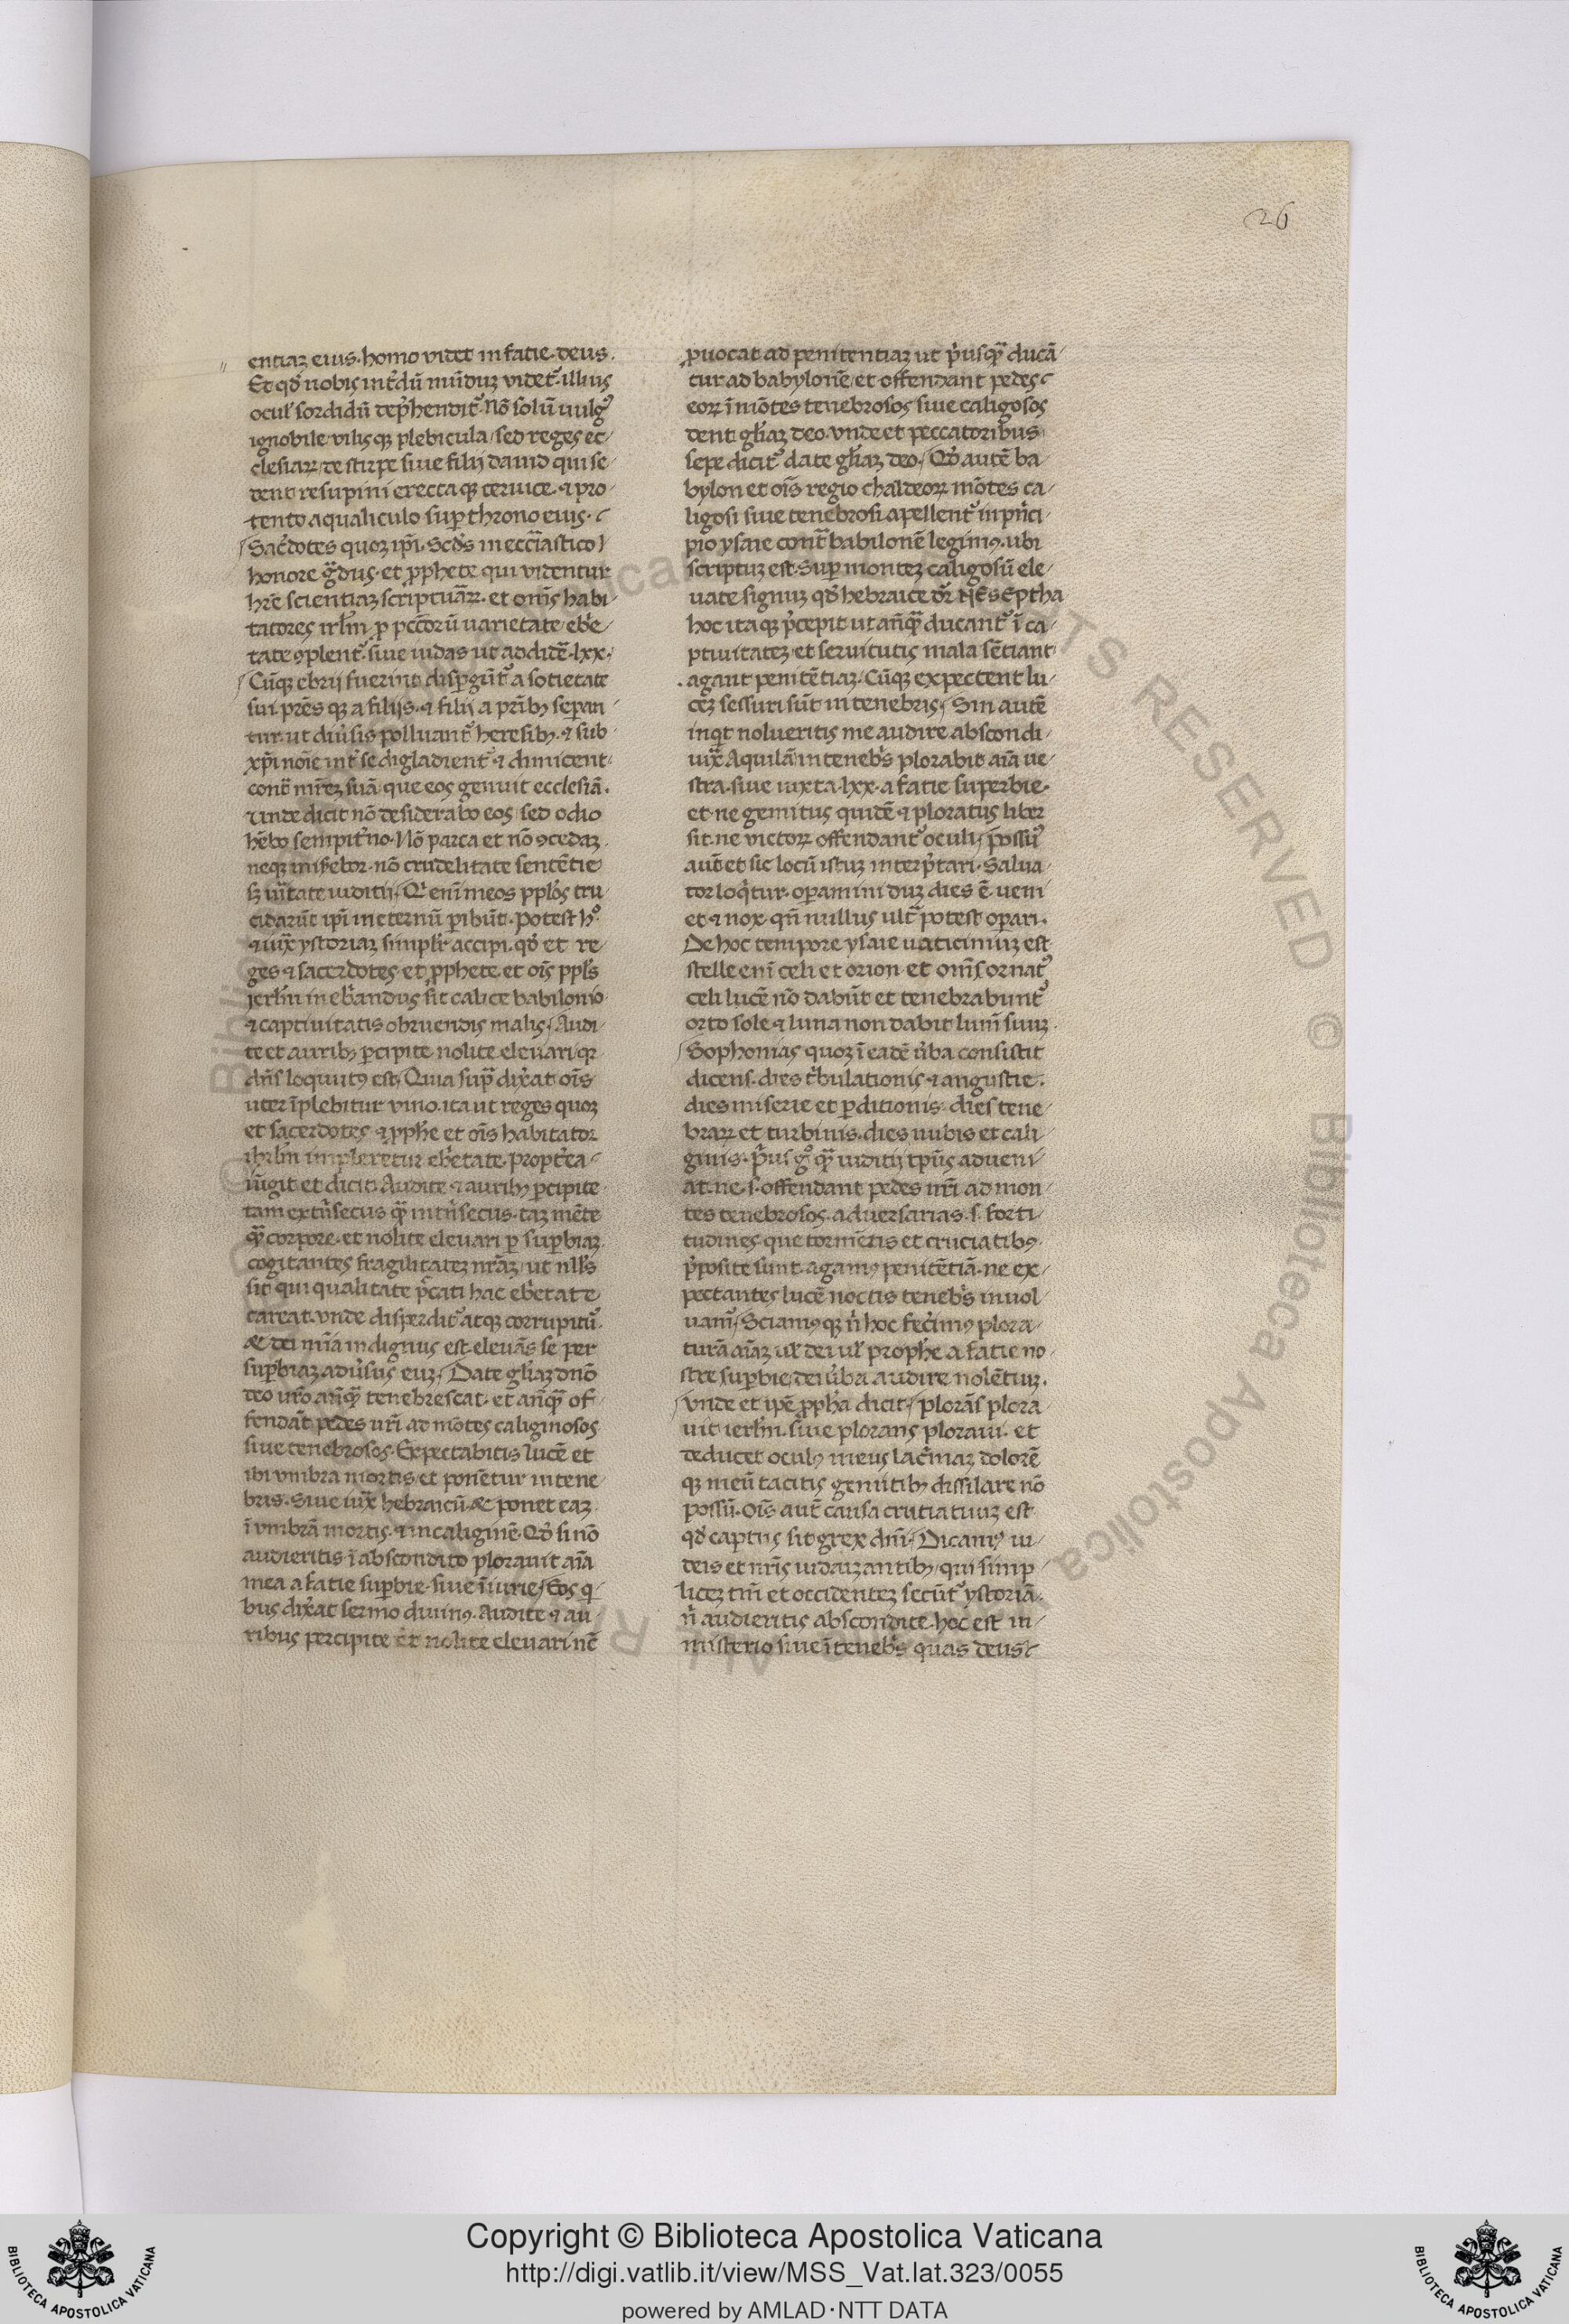 26
entiaz eius. homo videt in facie. deus.
Et qd' nobis int'dū mūduz videt᷑. illius
ocul' sordidū dep'hendit᷑. Nō solū uulg᷒
ignobile vilisqz plebicula, sed reges ec-
clesiaꝝ, de stirpe siue filij dauid qui se-
dent resupini erectaqz ceruice. ⁊ pro-
tento aqualiculo suꝑ throno eius.
Sac'dotes quoqz ip̄i. Scd's in eccl'iastico
honore g̃dus. et ꝓphete qui videntur
hr̄e scientiaz scripturaꝝ. et om̄s habi-
tatores irl'm ꝓ pcc̄torū uarietate eb'e-
tate ꝯplent᷑. siue iudas ut addidē. lxx.
Cūqz ebrij fuerint disꝑgūt᷑ a societate
sui pr̄esqz a filijs. ⁊ filij a pr̄ibꝫ seꝑan-
tur. ut diu'sis polluant᷑ heresibꝫ. ⁊ sub
xp̄i noīe int' se digladient᷑ ⁊ dimicent
cont̃ mr̄ez suā. que eos genuit ecclesiā.
unde dicit nō desiderabo eos, sed odio
hēbo sempit'no. Nō parca et nō ꝯcedaz
neqz mis'ebor. nō crudelitate sentētie
sꝫ ũitate iuditij. Q' enī meos ppl'os tru-
cidarūt ip̄i in eternū ꝑibūt. Potest h᷒
⁊ iux̃ ystoriaz simpl'r accipi. qd' et re-
ges ⁊ sacerdotes et ꝓphete. et oīs ppl's
ierl'm inebr'andus sit calice babilonio
⁊ captiuitatis obruendis malis. Audi-
te et auribꝫ ꝑcipite nolite eleuari qꝛ
dn̄s loquutꝰ est. Quia sup̃ dix'at oīs
uter īplebitur vino. ita ut reges quoqz
et sacerdotes ⁊ ꝓphe et oīs habitator
ihrl'm impleretur eb'etate. propt'ea
iūgit et dicit. Audite ⁊ auribꝫ ꝑcipite
tam ext'ⁿsecus q̃ int'ⁿsecus. taz mēte
q̃ corpore. et nolite eleuari ꝑ suꝑbiaz
cogitantes fragilitatez nr̄az, ut null's
sit qui qualitate p'cati hac eb'etate
careat. vnde disperdit᷑ atqz corrupitu᷑
& dei mīa indignus est. eleuās se per
suꝑbiaz adu'sus euz. Date gl'iaz dn̄o
deo vr̄o añq̃ tenebrescat. et añq̃ of-
fendāt pedes vr̄i ad mōtes caliginosos
siue tenebrosos. Expectabitis lucē et
ibi vmbra mortis et ponetur in tene-
bris. Siue iux̃ hebraicū & ponet eaz
ī vmbrā mortis. ⁊ in caliginē. Qd' si nō
audieritis ī abscondito plorauit aīa
mea a facie suꝑbie. siue īiurie. Eos q'-
bus dix'at sermo diuinꝰ. Audite ⁊ au-
ribus percipite et nolite eleuari nc̄
ꝓuocat ad penitentiaz ut p'usq̃ ducā-
tur ad babylonē, et offendant pedes
eoꝝ ī mōtes tenebrosos siue caligosos
dent gl'iaz deo. vnde et peccatoribus
sepe dicit᷑ date gl'iaz deo. Qd' autē ba-
bylon et oīs regio chaldeoꝝ mōtes ca-
ligosi siue tenebrosi apellent᷑ in pn'ci-
pio ysaie cont̃ babilonē legimꝰ. ubi
scriptuz est. Suꝑ montez caligosū ele-
uate signuz qd' hebraice dr̄ NESEPtha
hoc itaqz p'cepit ut añq̃ ducant᷑ ī ca-
ptiuitatez et seruitutis mala sētiant
agant penitētiaz. Cūqz expectent lu-
cēz sessuri sūt in tenebris. Sin autē
inq't nolueritis me audire abscondi-
iux̃ Aquilā in teneb's plorabit aīa ue-
stra. siue iuxta. lxx. a facie superbie.
et ne gemitus quidē ⁊ ploratus liber
sit. ne victoꝝ offendant᷑ oculi. possu᷒
aut̄ et sic locū istuz interp'tari. Salua-
tor loq'tur. oꝑamini duz dies ē. veni-
et ⁊ nox. qñ nullus ult̃ potest oꝑari.
De hoc tempore ysaie uaticiniuz est
stelle enī celi et orion et om̄s ornat᷒
celi lucē nō dabūt et tenebrabunt᷑
orto sole ⁊ luna non dabit lum̄ suuz.
Sophonias quoqz ī eadē u'ba consistit
dicens. dies t'bulationis ⁊ angustie.
dies miserie et ꝑditionis. dies tene-
braꝝ et turbinis. dies nubis et cali-
ginis. p'us g᷒ q̃ iuditij tp̄us adueni-
at. ne. s. offendant pedes nr̄i ad mon-
tes tenebrosos. aduersarias. s. forti-
tudines que tormētis et cruciatibꝰ
p'posite sunt. agamꝰ penitētiā. ne ex-
pectantes lucē noctis teneb's inuol-
uam᷑. Sciamꝰqz n' hoc fec'imꝰ plora-
turā aīaz ul' dei ul' prophe a facie no-
stre suꝑbie, dei u'ba audire nolētiuz.
vnde et ip̄e ꝓpha dicit. plorās plora-
uit ierl'm. siue plorans ploraui. et
deducet oculꝰ meus lac'maz dolorē
qz meū tacitis gemitibꝫ dissilare nō
possū. Oīs aut̄ causa cruciatuuz est
qd' captus sit grex dn̄i. Dicamꝰ iu-
deis et nr̄is iudaizantibꝫ, qui simp-
licez tm̄ et occidentez secūt᷑ ystoriā.
n' audieritis abscondite. hoc est in
misterio siue ī teneb's quas deus
Copyright © Biblioteca Apostolica Vaticana
http://digi.vatlib.it/view/MSS_Vat.lat.323/0055
powered by AMLAD·NTT DATA
BIBLIOTECA APOSTOLICA VATICANA
BIBLIOTECA APOSTOLICA VATICANA